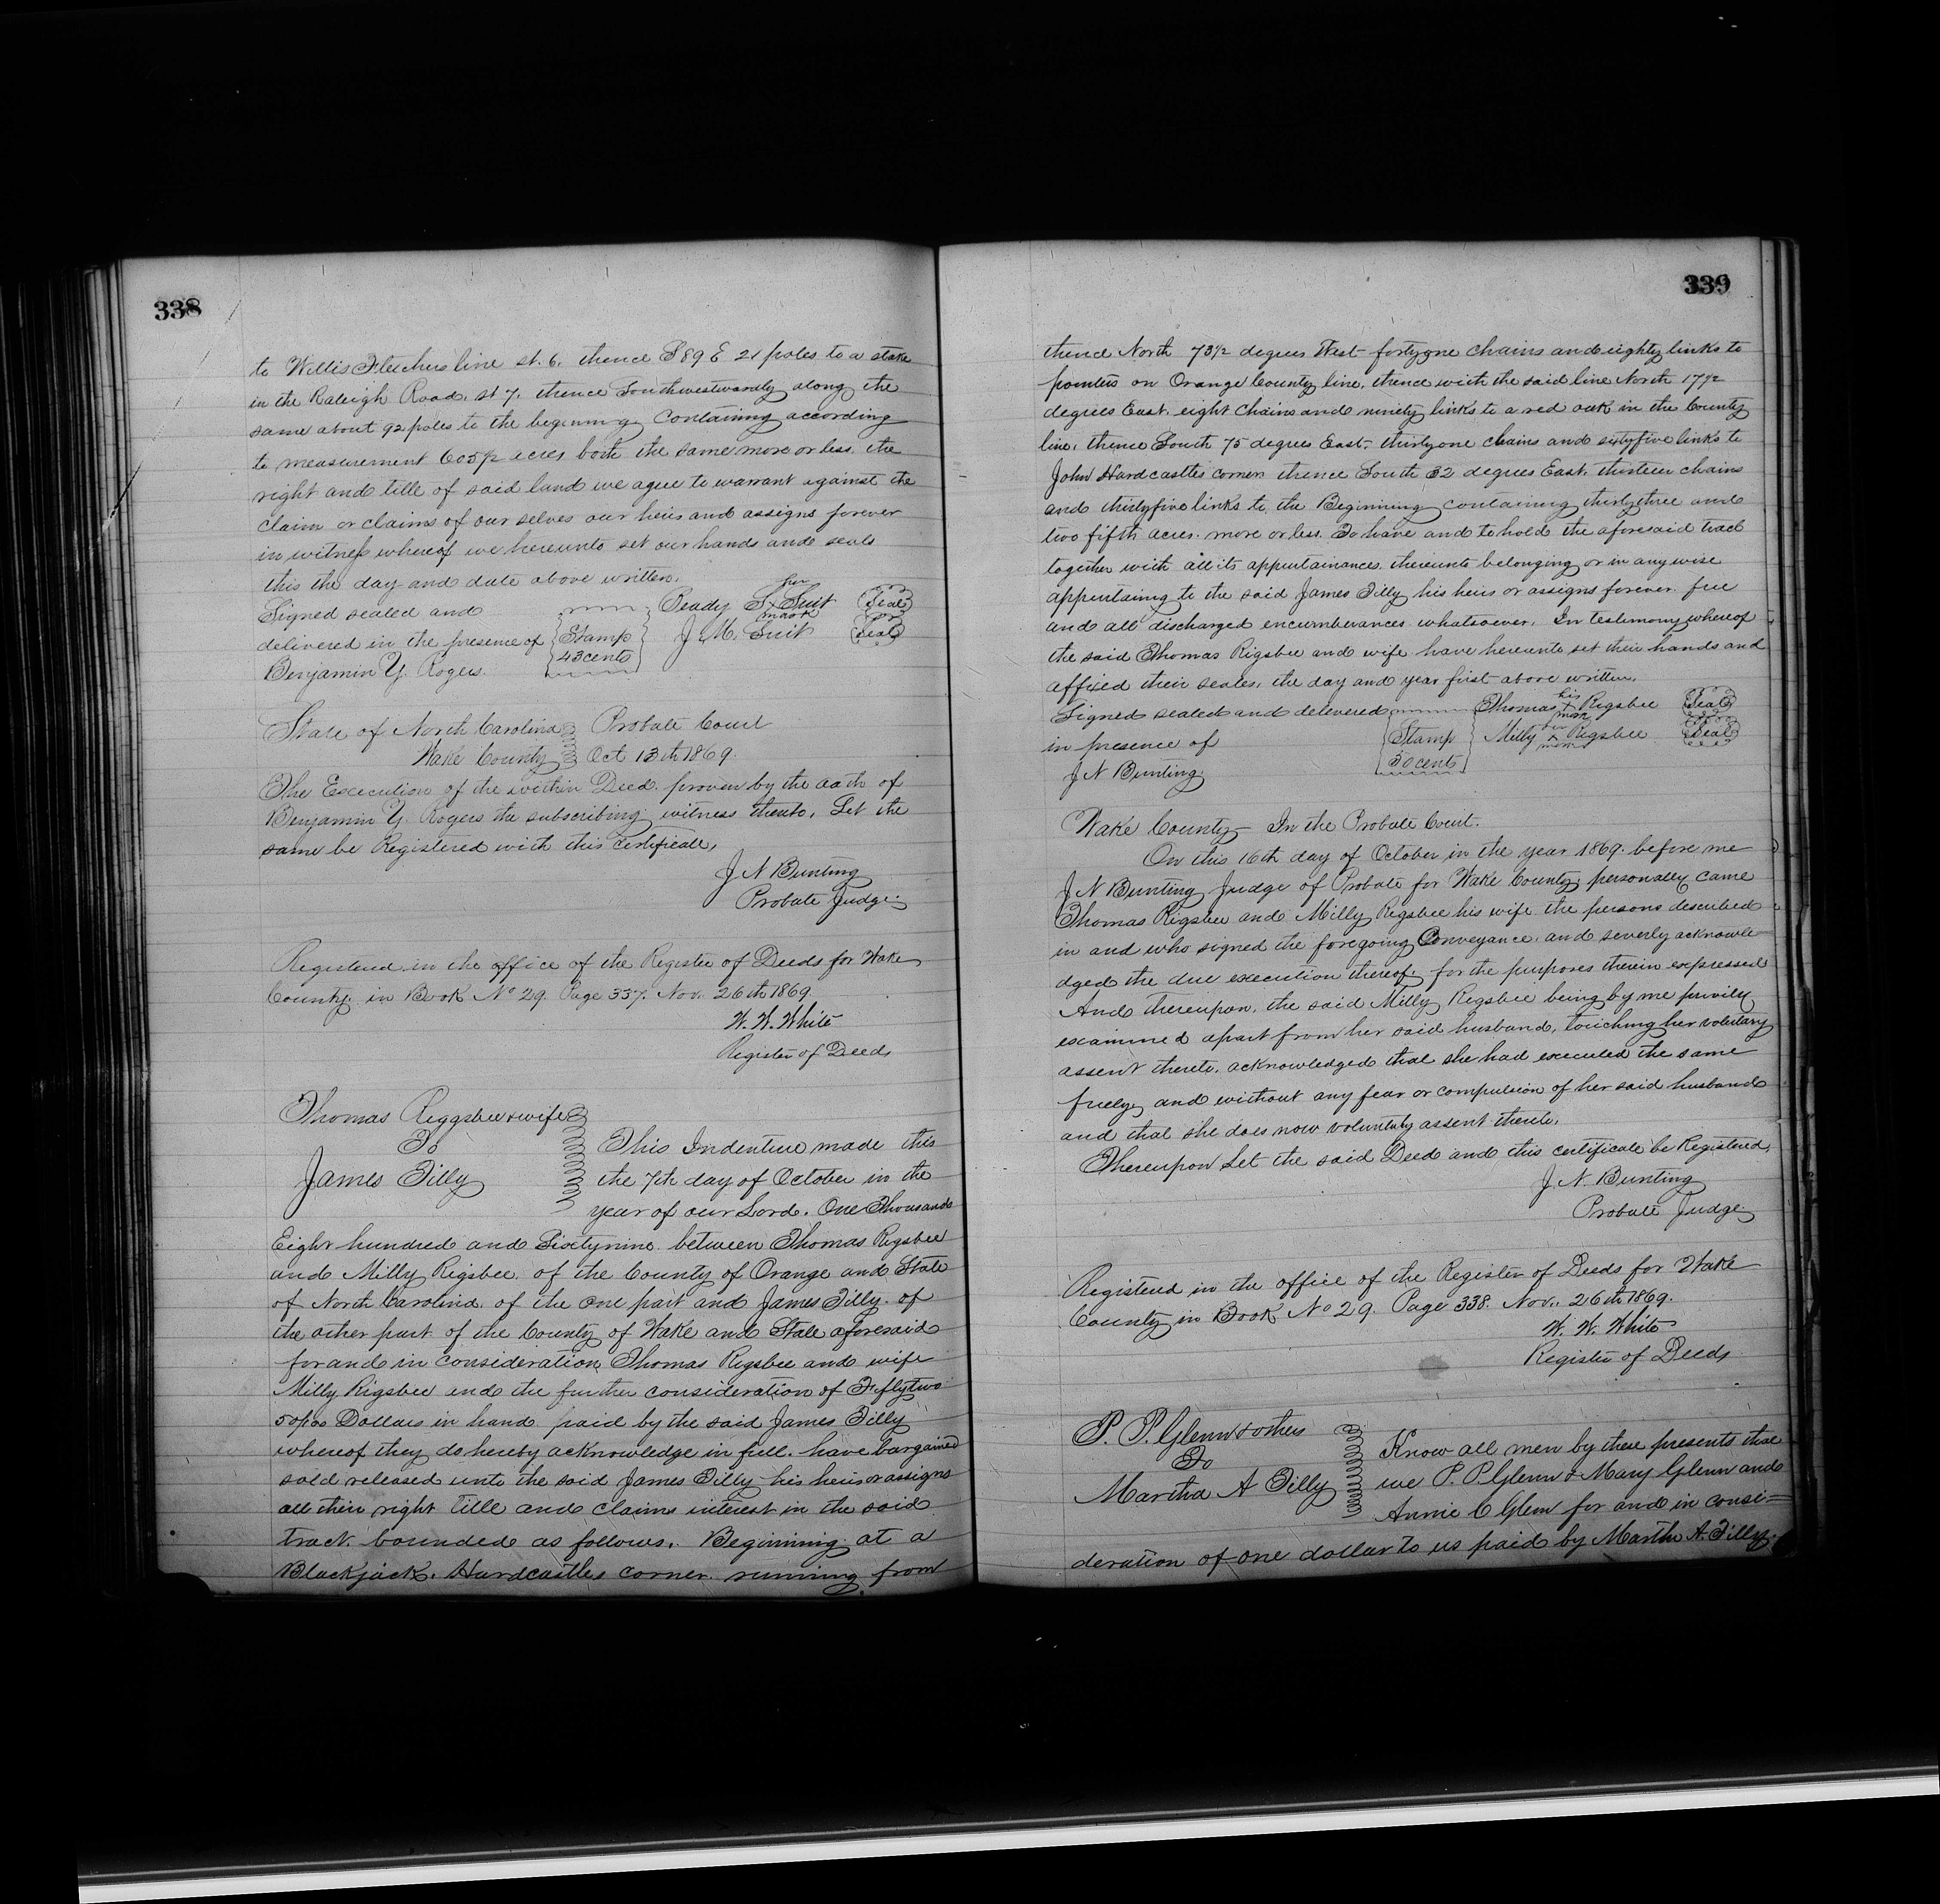 338
to Willis Fletchers line st. 6. thence S 89 E 21 poles to a stake
in the Raleigh Road. st 7. thence Southwestwardly along the
same about 92 poles to the beginning Containing according
to measurement 605/2 acres both the same more or less. the
right and title of said land we agree to warrant against the
claim or claims of our selves our heirs and assigns forever
in witness whereof we hereunto set our hands and seals
this the day and date above written.
Signed sealed and
delivered in the presence of
Benjamin Y. Rogers.
Stamp
43 cents
her
Ready S x Suit Seal
mark
J. M. Suit Seal
State of North Carolina Probate Court
Wake County Oct 13th 1869.
The Execution of the within Deed. proven by the oath of
Benjamin Y. Rogers the subscribing witness thereto. Let the
same be Registered with this certificate,
J N Bunting
Probate Judge.
Registered in the office of the Register of Deeds for Wake
County in Book No 29. Page 337. Nov. 26th 1869.
W. W. White
Register of Deeds
Thomas Riggsbee & wife
To
James Tilly
This Indenture made this
the 7th day of October in the
year of our Lord. One Thousand
Eight hundred and Sixtynine. between Thomas Rigsbee
and Milly Rigsbee. of the County of Orange and State
of North Carolina. of the one part and James Tilly. of
the other part. of the County of Wake and State aforesaid
for and in consideration Thomas Rigsbee and wife
Milly Rigsbee and the further consideration of Fiftytwo
50/00 Dollars in hand paid by the said James Tilly
whereof they do hereby acknowledge in full. have bargained
sold released unto the said James Tilly his heirs or assigns
all their right title and claims interest in the said
track. bounded as follows. Beginning at a
Blackjack. Hardcastles corner. running from
339
thence North 73 1/2 degrees West fortyone chains and eighty links to
pointers on Orange County line, thence with the said line North 17 1/2
degrees East. eight Chains and ninety links to a red oak in the County
line, thence South 75 degrees East. thirtyone chains and sixtyfive links to
John Hardcastles corner. thence South 32 degrees East. thirteen chains
and thirtyfive links to the Beginning containing thirtythree and
two fifth acres. more or less. To have and to hold the aforesaid tract
together with all its appurtainances. thereunto belonging or in any wise
appertaing to the said James Tilly his heirs or assigns forever. free
and all discharged encumberances whatsoever. In testimony whereof
the said Thomas Rigsbee and wife have hereunto set their hands and
affixed their seales. the day and year first above written.
Signed sealed and delivered
in presence of
J N Bunting
Stamp
50 cent
his
Thomas x Rigsbee Seal
mark
Milly x Rigsbee Seal
mark
Wake County In the Probate Court.
On this 16th day of October in the year 1869. before me
J N Bunting Judge of Probate for Wake County personally came
Thomas Rigsbee and Milly Rigsbee his wife the persons described
in and who signed the foregoing Conveyance. and severly acknowle
dged the due execution thereof. for the purposes therein expressed
And thereupon, the said Milly Rigsbee being by me privily
examined apart from her said husband, touching her voluntary
assent thereto. acknowledged that she had executed the same
freely, and without any fear or compulsion of her said husband
and that she does now voluntary assent thereto,
Thereupon Let the said Deed and this certificate be Registered,
J. N. Bunting
Probate Judge
Registered in the office of the Register of Deeds for Wake
County in Book No 29. Page 338. Nov. 26th 1869.
W. W. White
Register of Deeds
P. P. Glenn & others
To
Martha A Tilly
Know all men by these presents that
we P. P. Glenn & Mary Glenn and
Annie C Glenn for and in consi=
deration of one dollar to us paid by Martha A. Tilly.